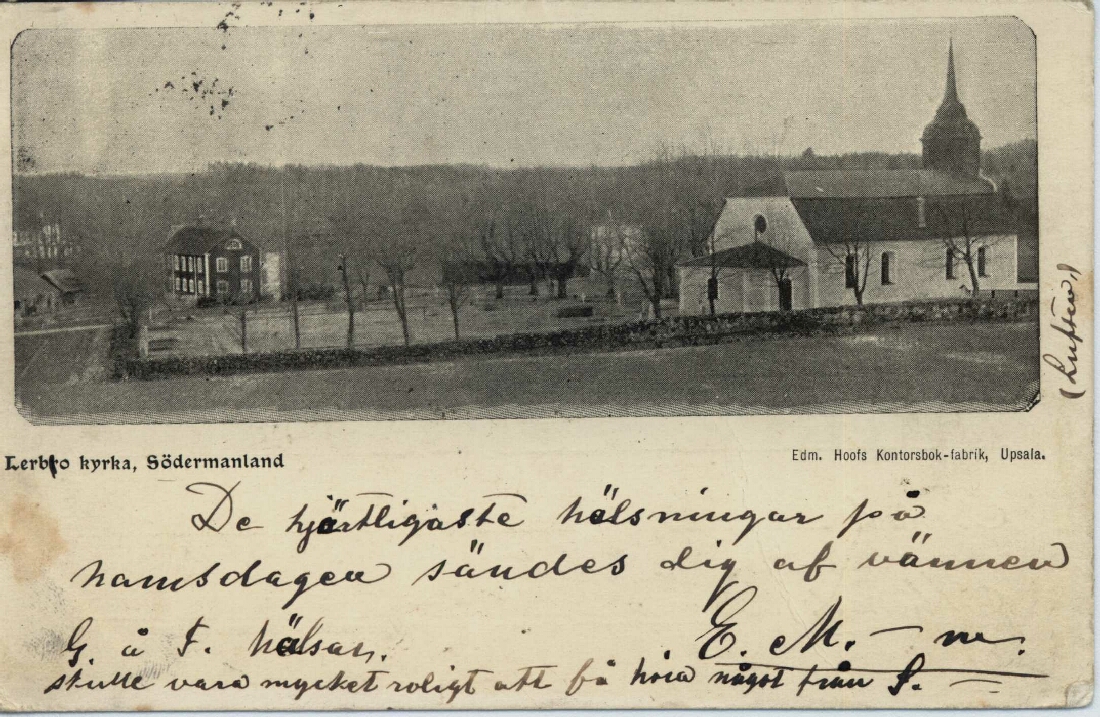 Lerbro kyrka, Södermanland
Edm. Hoofs Kontorsbok-fabrik, Upsala.
(Luften)
De hjärtligaste hälsningar på
namsdagen sändes dig af vännen
E. M. – m.
G. å F. hälsar.
skulle vara mycket roligt att få höra något från S. –